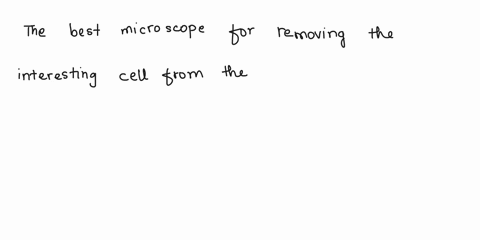 The best microscope for removing the
interesting cell from the